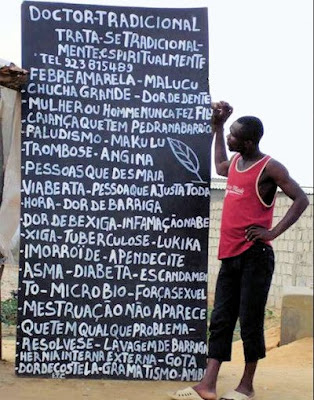 DOCTOR-TRADICIONAL
TRATA-SE TRADICIONAL-
MENTE; ESPIRITUALMENTE
TEL 923815489
FEBRE AMARELA-MALUCU
CHUCHA GRANDE-DOR DE DENTE
MULHER OU HOMME NUNCA FEZ FIL
CRIANÇA QUE TEM PEDRA NA BARRIG
PALUDISMO-MAKULU
TROMBOSE-ANGINA
PESSOAS QUE DESMAIA
VIA BERTA-PESSOA QUE AJUSTA TODA
HORA-DOR DE BARRIGA
DOR DE BEXIGA-INFAMAÇÃO NA BE
XIGA-TUBERCULOSE-LUKIKA
IMORRÓIDE-APENDECITE
ASMA-DIABETA-ESCANDAMEN
TO-MICROBIO-FORÇA SEXUEL
MESTRUAÇÃO NÃO APARECE
QUE TEM QUALQUE PROBLEMA-
RESOLVESE-LAVAGEM DE BARRIG
HERNIA INTERNA EXTERNA-GOTA
DOR DE COSTELA-GRAMATISMO-AMIB
ETC